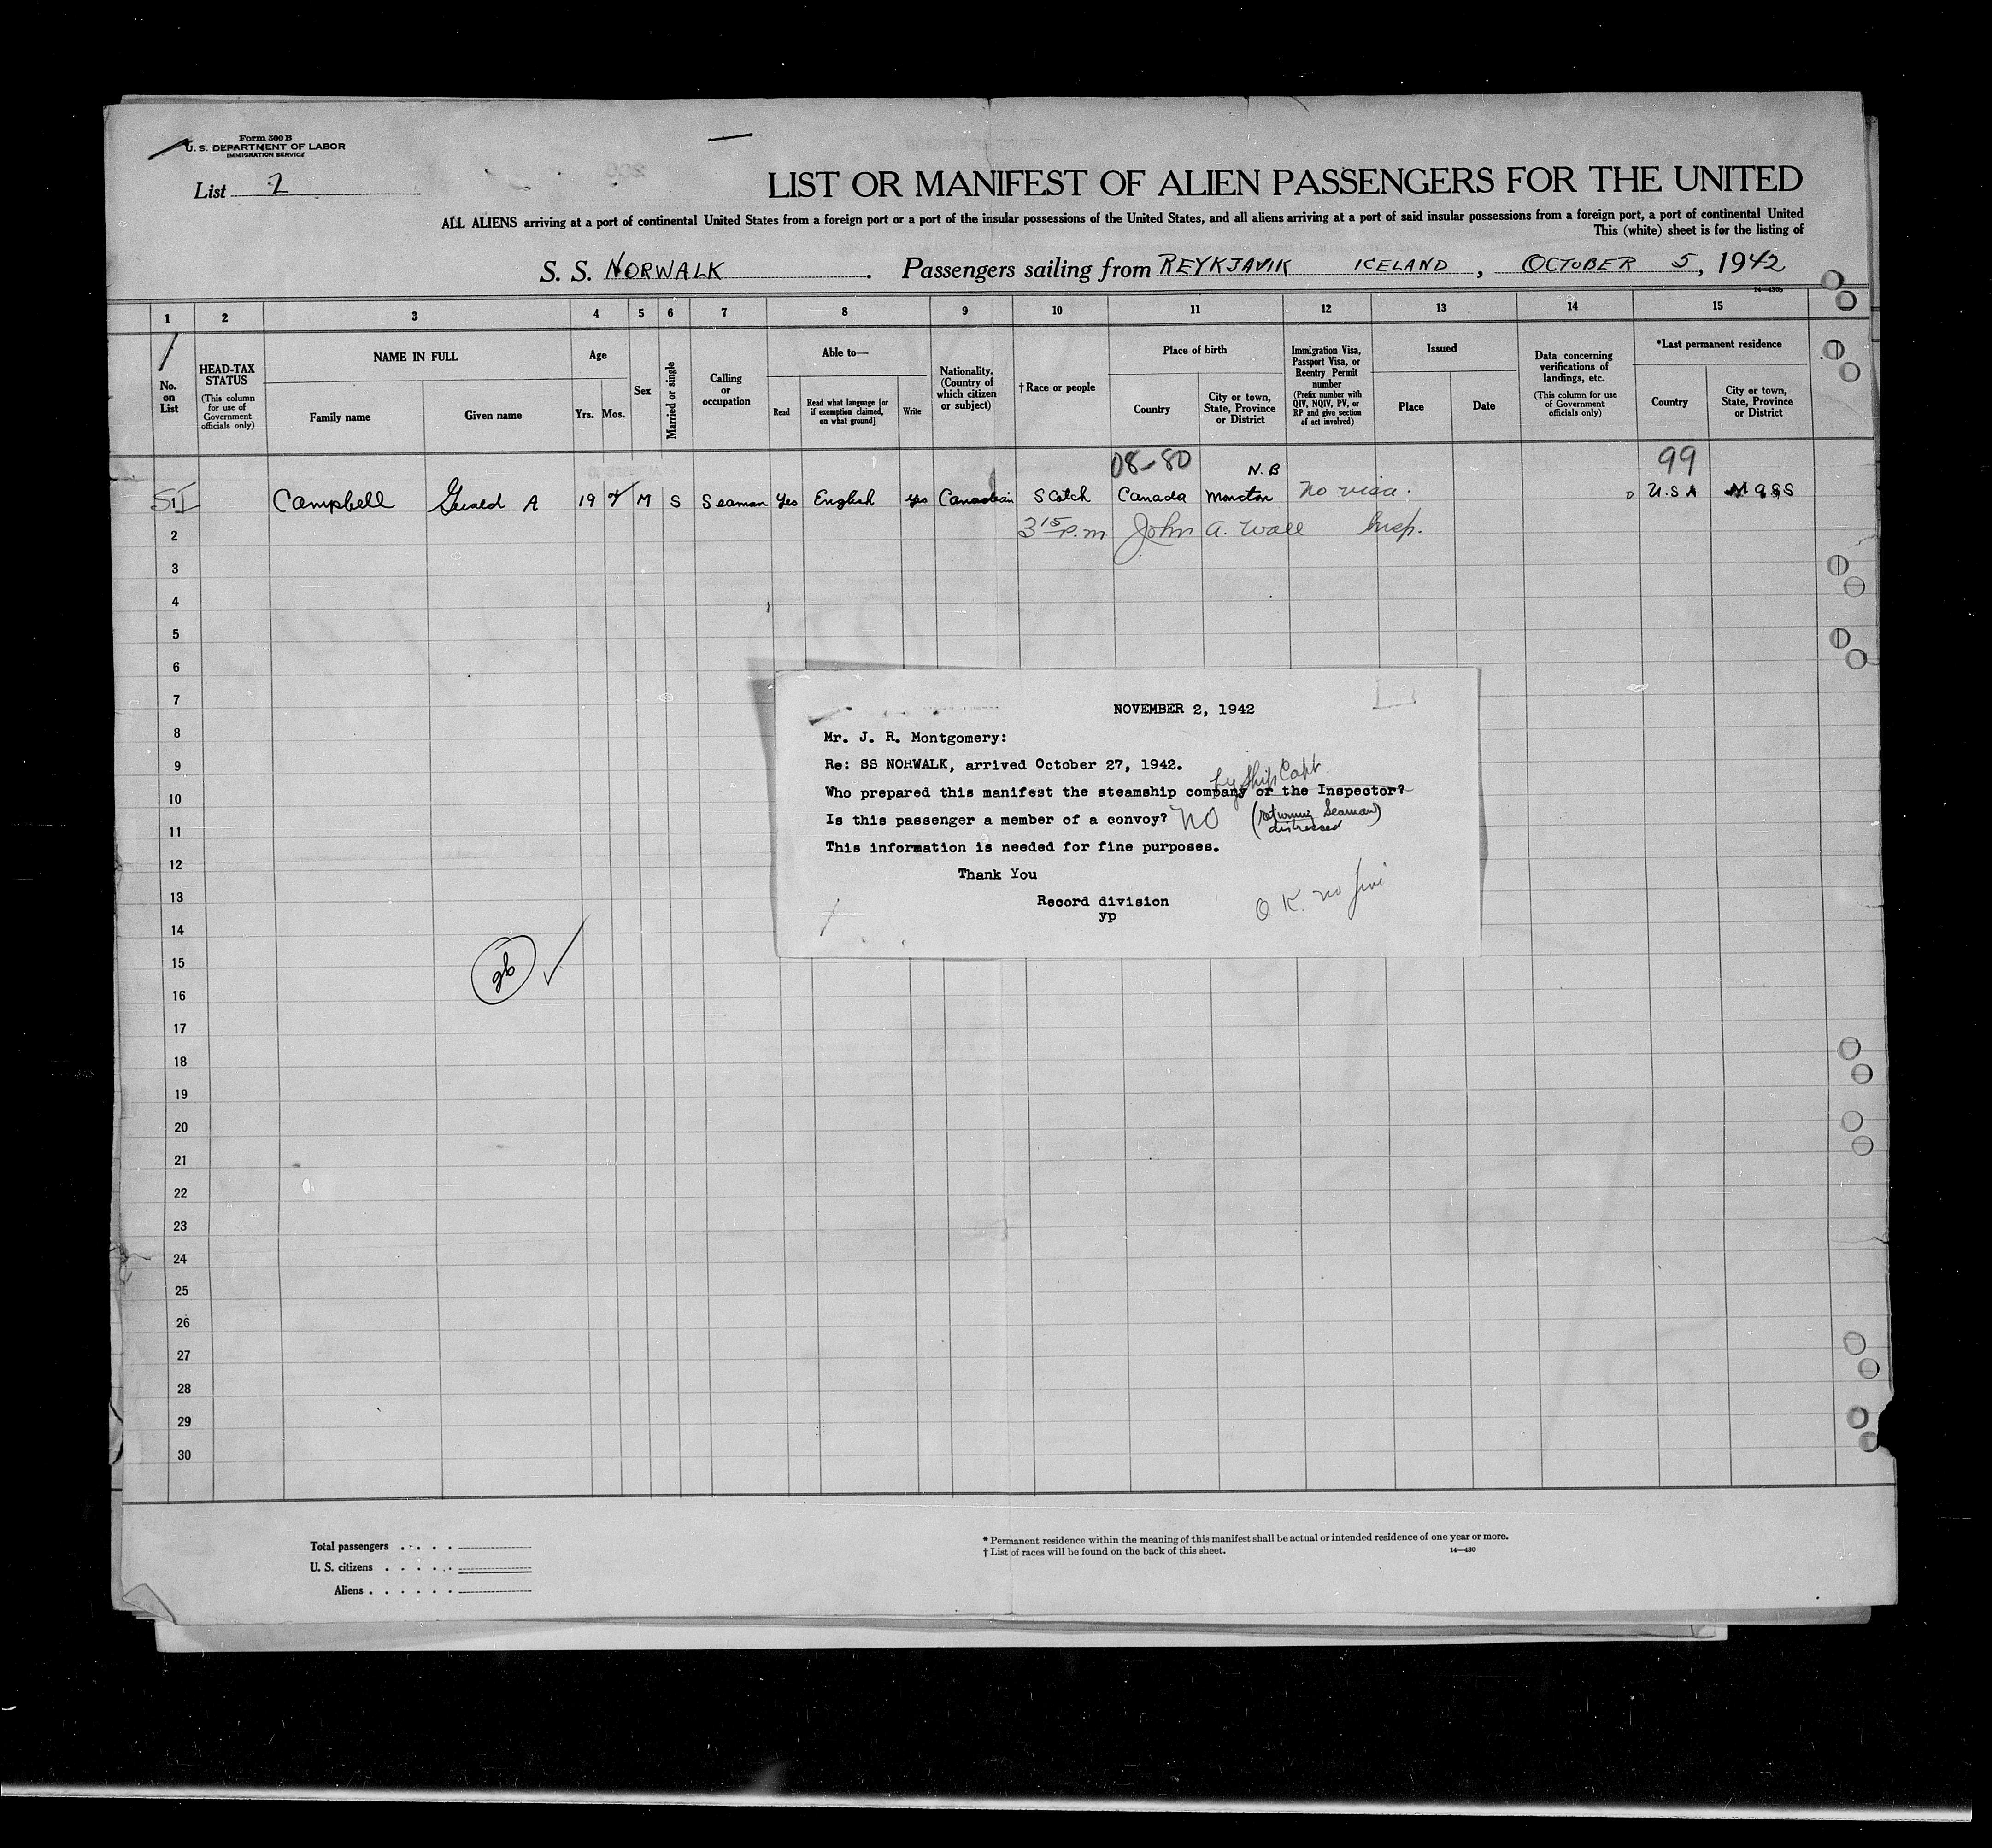 Form 500 B
U. S. DEPARTMENT OF LABOR
IMMIGRATION SERVICE
List 2
LIST OR MANIFEST OF ALIEN PASSENGERS FOR THE UNITED
ALL ALIENS arriving at a port of continental United States from a foreign port or a port of the insular possessions of the United States, and all aliens arriving at a port of said insular possessions from a foreign port, a port of continental United
This (white) sheet is for the listing of
S. S. NORWALK . Passengers sailing from REYKJAVIK ICELAND , OCTOBER 5, 1942
14—430b
1 2 3 4 5 6 7 8 9 10 11 12 13 14 15
No. on List
HEAD-TAX STATUS (This column for use of Government officials only)
NAME IN FULL
Family name Given name
Age
Yrs. Mos.
Sex
Married or single
Calling or occupation
Able to—
Read
Read what language [or if exemption claimed, on what ground]
Write
Nationality. (Country of which citizen or subject)
†Race or people
Place of birth
Country
City or town, State, Province or District
Immigration Visa, Passport Visa, or Reentry Permit number (Prefix number with QIV, NQIV, PV, or RP and give section of act involved)
Issued
Place Date
Data concerning verifications of landings, etc. (This column for use of Government officials only)
*Last permanent residence
Country
City or town, State, Province or District
08-80 N.B 99
Campbell Gerald A 19 M S Seaman Yes English Yes Canadian Scotch Canada Moncton No visa. U.S A Mass
2 3 15 P.m John A. Wall Insp.
3
4
5
6
7
8
9
10
11
12
13
14
15
16
17
18
19
20
21
22
23
24
25
26
27
28
29
30
NOVEMBER 2, 1942
Mr. J. R. Montgomery:
Re: SS NORWALK, arrived October 27, 1942.
by Ship Capt
Who prepared this manifest the steamship company or the Inspector?
Is this passenger a member of a convoy? NO (returning Seaman)
distressed
This information is needed for fine purposes.
Thank You
Record division
yp
O K. no fine
Total passengers . . . .
U. S. citizens . . . . .
Aliens . . . . . .
* Permanent residence within the meaning of this manifest shall be actual or intended residence of one year or more.
† List of races will be found on the back of this sheet.
14—430